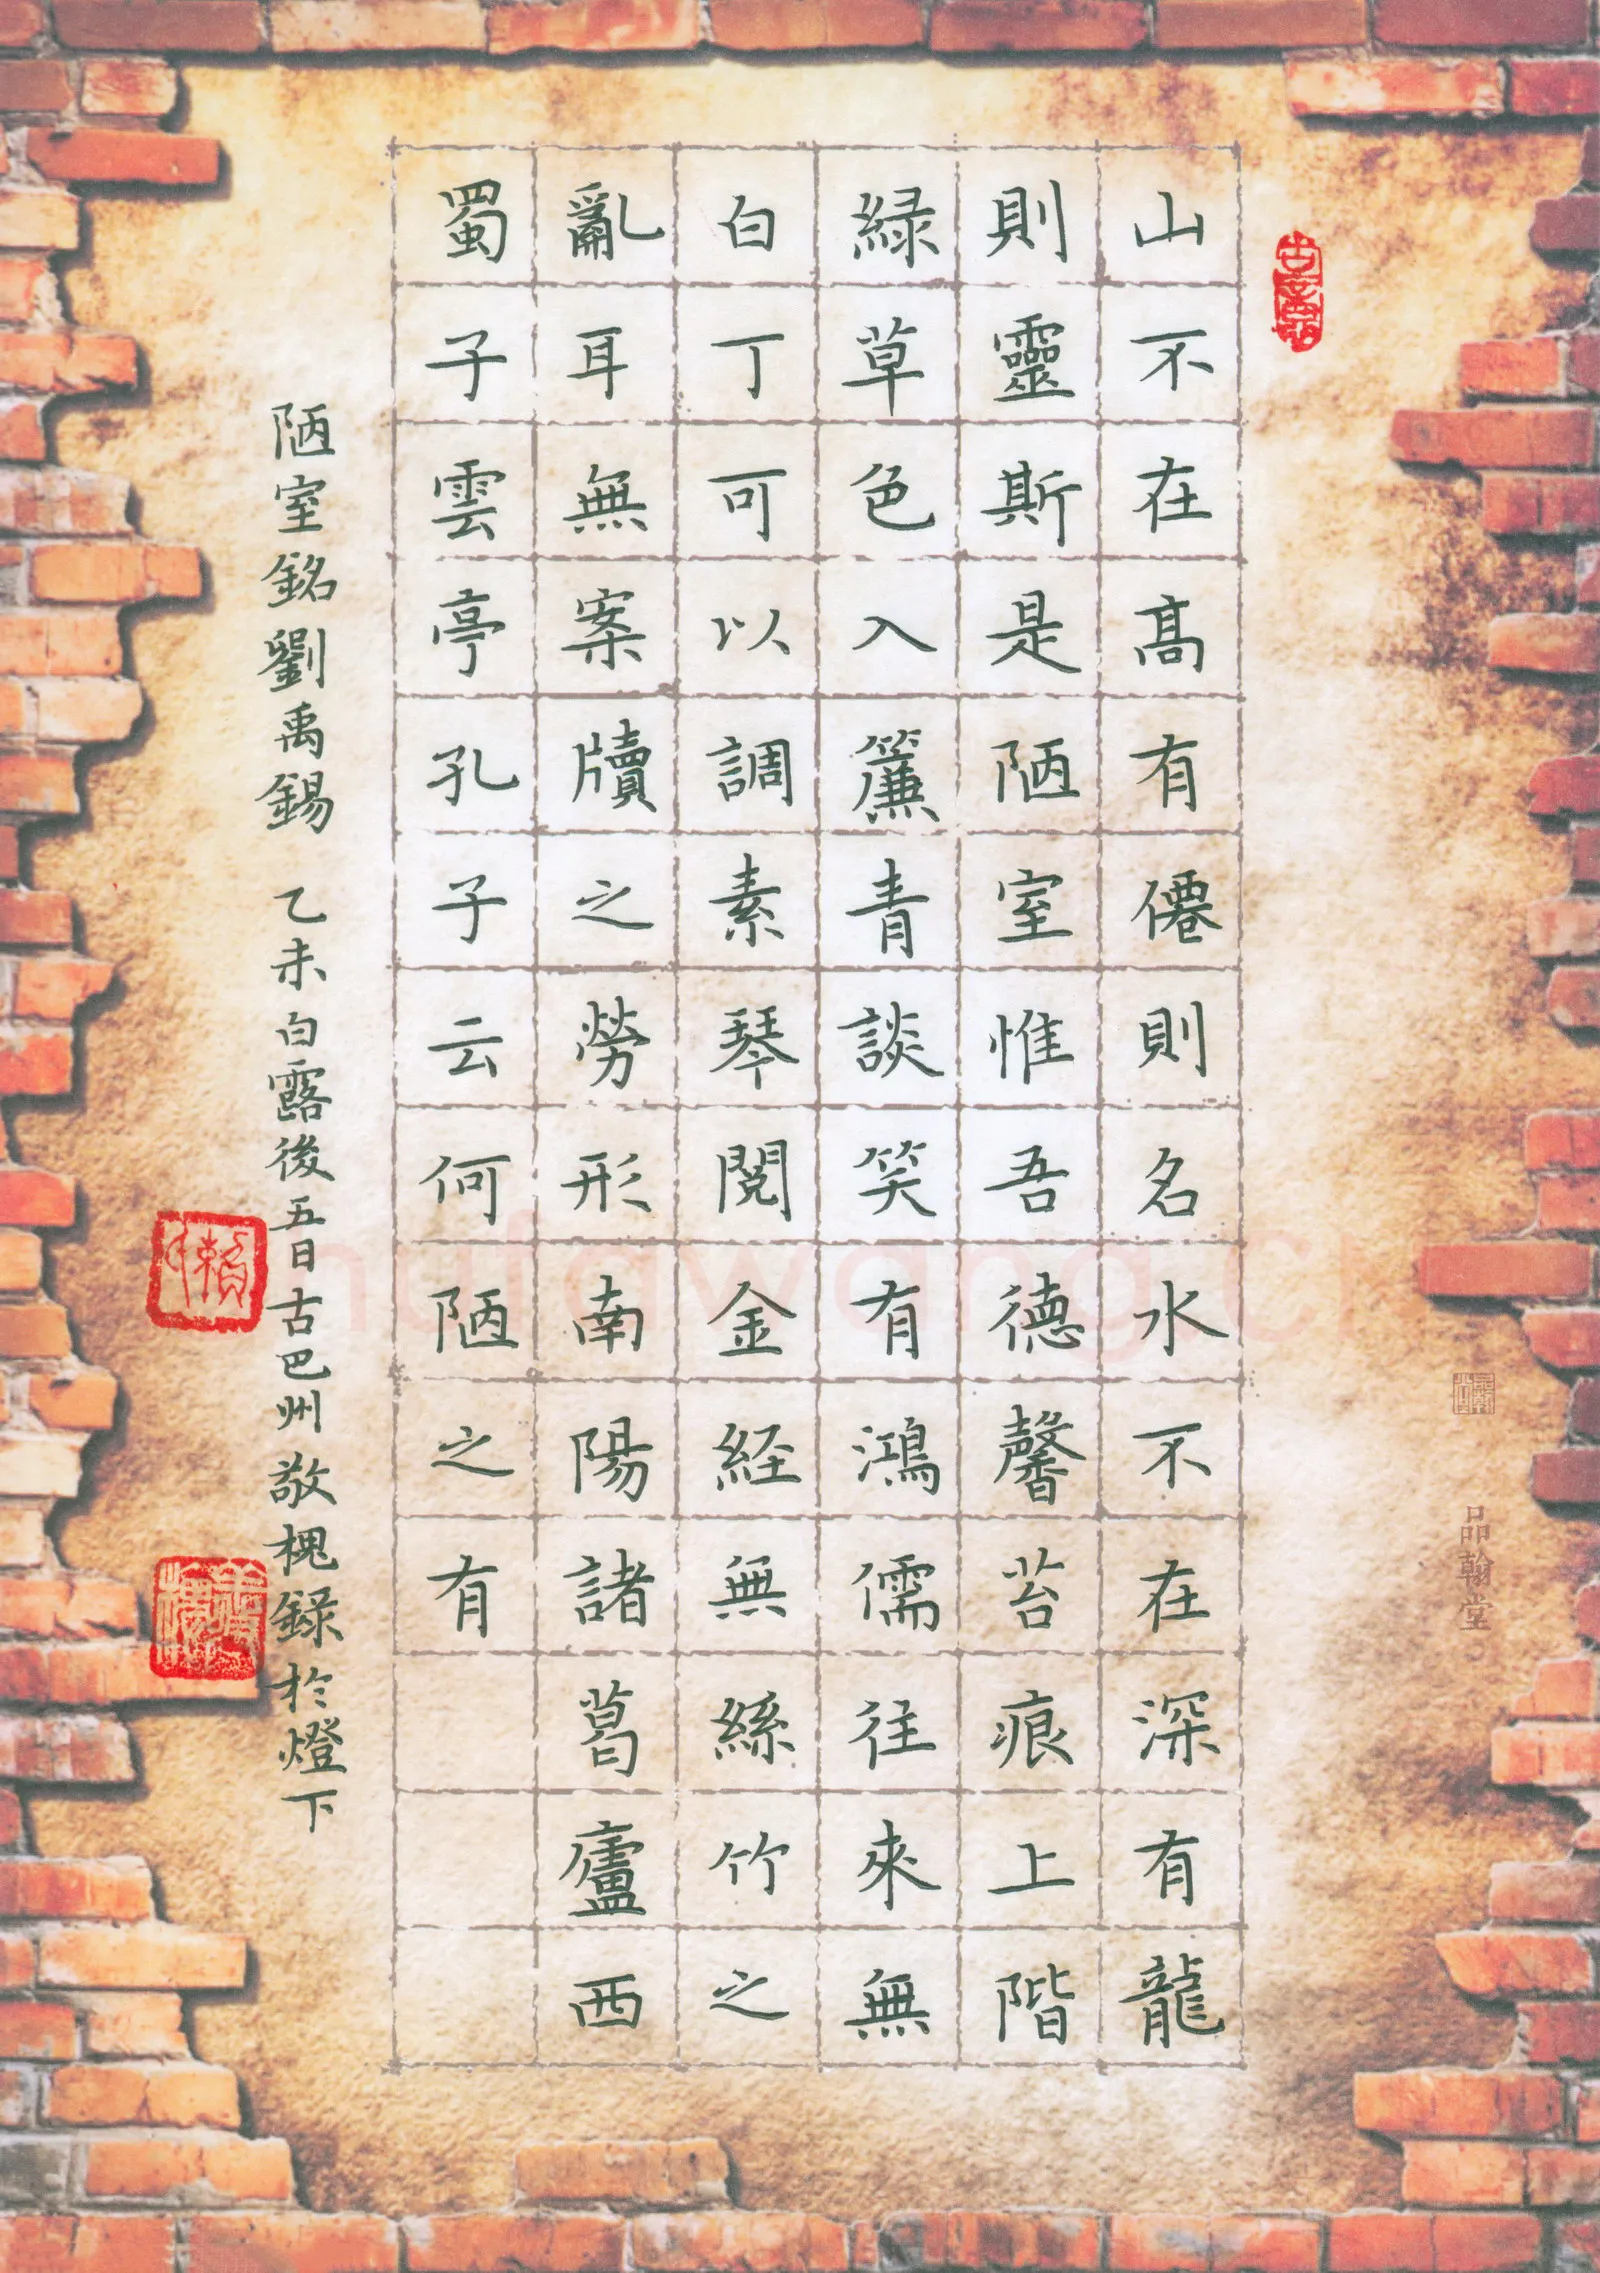 山不在髙有僊則名水不在深有龍
則靈斯是陋室惟吾德馨苔痕上階
緑草色入簾青談笑有鴻儒往來無
白丁可以調素琴閱金経無絲竹之
亂耳無案牘之勞形南陽諸葛廬西
蜀子雲亭孔子云何陋之有
陋室銘劉禹錫 乙未白露後五日古巴州敬槐録於燈下
品翰堂